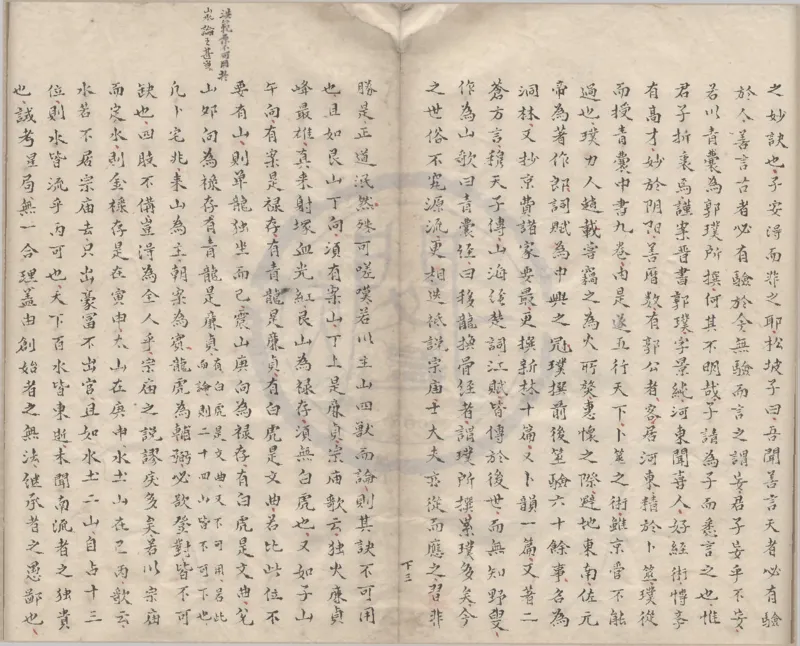 之妙訣也子安得而非之耶松坡子曰吾聞善言天者必有驗
於人善言古者必有驗於今無驗而言之謂妄君子妄乎不妄
若以青囊為郭璞所撰何其不明哉子請為子而悉言之也惟
君子折衷焉謹案晉書郭璞字景純河東聞喜人好經術博學
有高才妙於陰陽善曆數有郭公者客居河東精於卜筮璞從
而授青囊中書九卷由是遂五行天下卜筮之術雖京管不能
過也璞門人趙載嘗竊之為火所焚惠懷之際避地東南佐元
帝為著作郎詞賦為中興之冠璞撰前後筮驗六十餘事名為
洞林又抄京費諸家要最更撰新林十篇又卜韻一篇又著二
蒼方言穆天子傳山海經楚詞江賦皆傳於後世而無知野叟
作為山歌曰青囊經曰移龍換骨經者謂璞所撰累璞多矣今
之世俗不究源流更相迭抵說宗庙士大夫亦從而應之習非
下三
勝是正道泯然殊可嗟嘆若以生山四獸而論則其訣不可用
也且如艮山丁向須有案山丁上是廉貞宗庙歌云独火廉貞
峰最雄真来射塚血光紅艮山為祿存須無白虎也又如子山
午向有案是祿存有青龍是廉貞有白虎是文曲若比此位不
要有山則單龍独坐而已震山庚向為祿存有白虎是文曲兌
山卯向為祿存有青龍是廉貞有白虎是文曲又不可用若此
而論則二十四山皆不可下也
凡卜宅兆来山為主朝案為賓龍虎為輔弼必欲登對皆不可
缺也四肢不備豈得為全人乎宗庙之說謬戾多矣若以宗庙
而定水則金祿存是在寅申大山在庚申水土山在己丙歌云
水若不居宗庙去只出豪冨不出官且如水土二山自占十三
位則水皆流乎丙可也天下百水皆東逝未聞南流者之独貴
也誠考星局無一合理蓋由創始者之無法継承者之愚鄙也